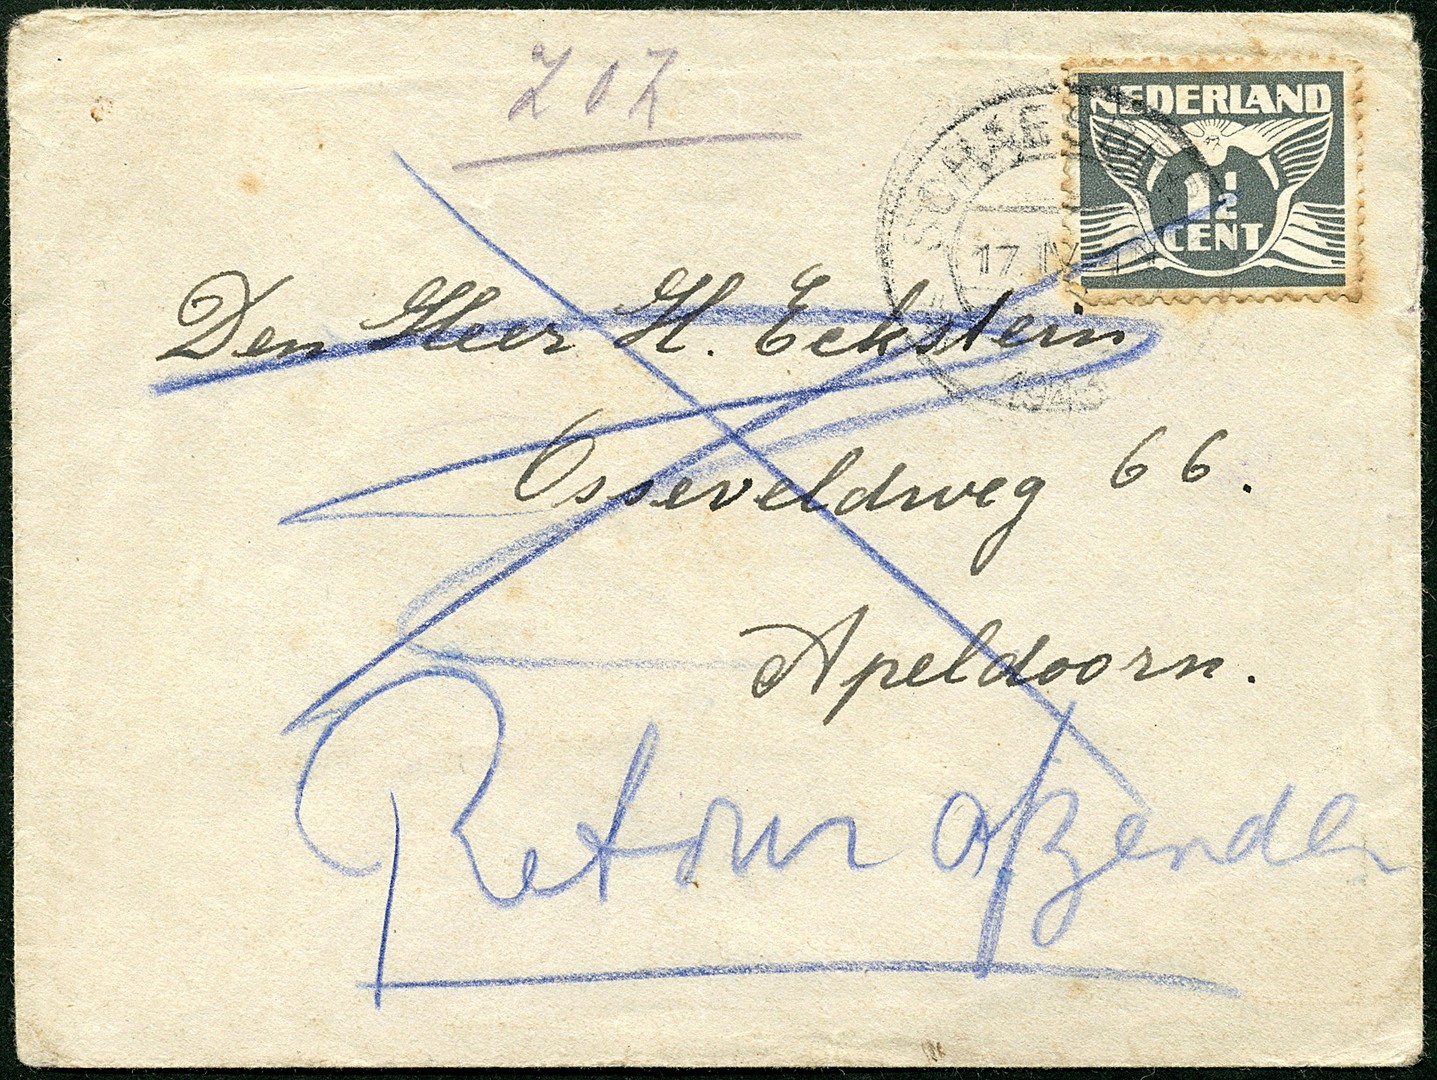 ZOZ
NEDERLAND
1 1/2
CENT
17 IV
1943
Den Heer H. Eckstein
Osseveldweg 66.
Apeldoorn.
Retour afzender